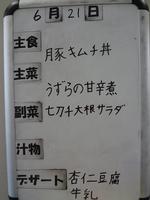 6月21日
主食
豚キムチ丼
主菜
うずらの甘辛煮
副菜
七刀チ大根サラダ
汁物
デザート 杏仁豆腐
牛乳